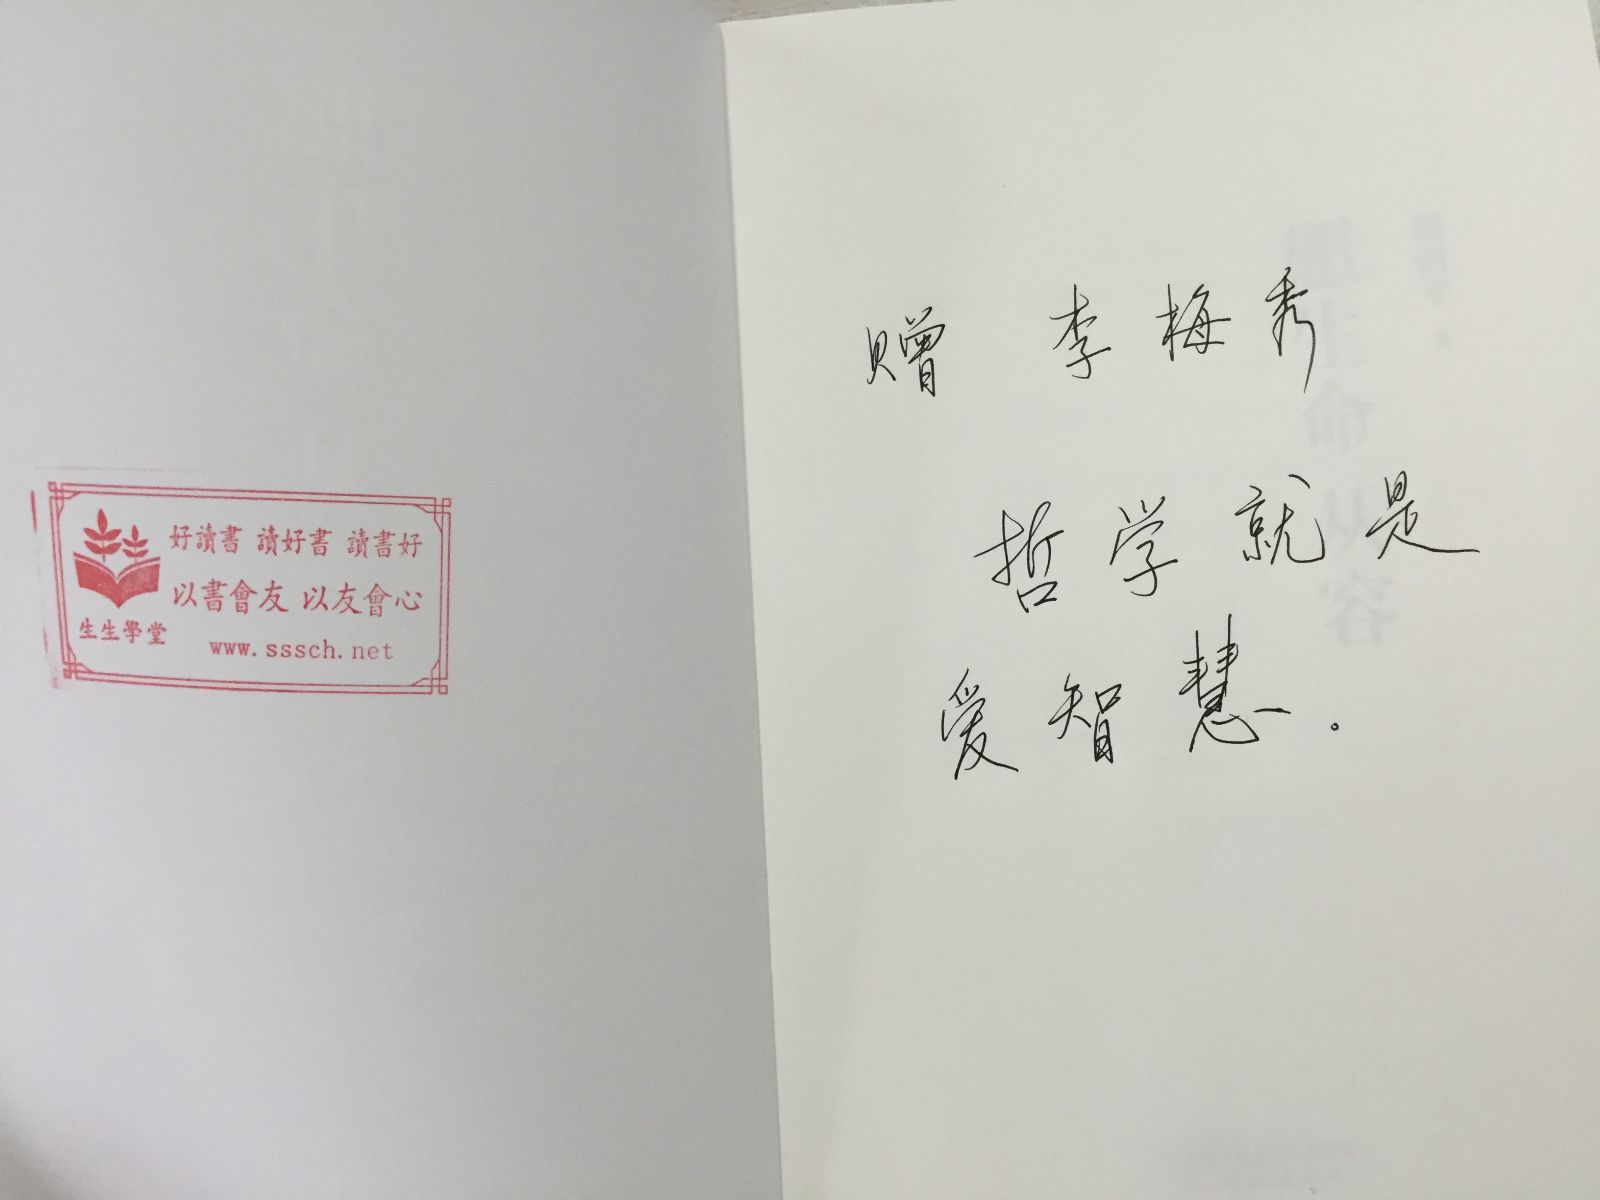 好讀書 讀好書 讀書好
以書會友 以友會心
生生學堂
www.sssch.net
赠 李梅秀
哲学就是
爱智慧.